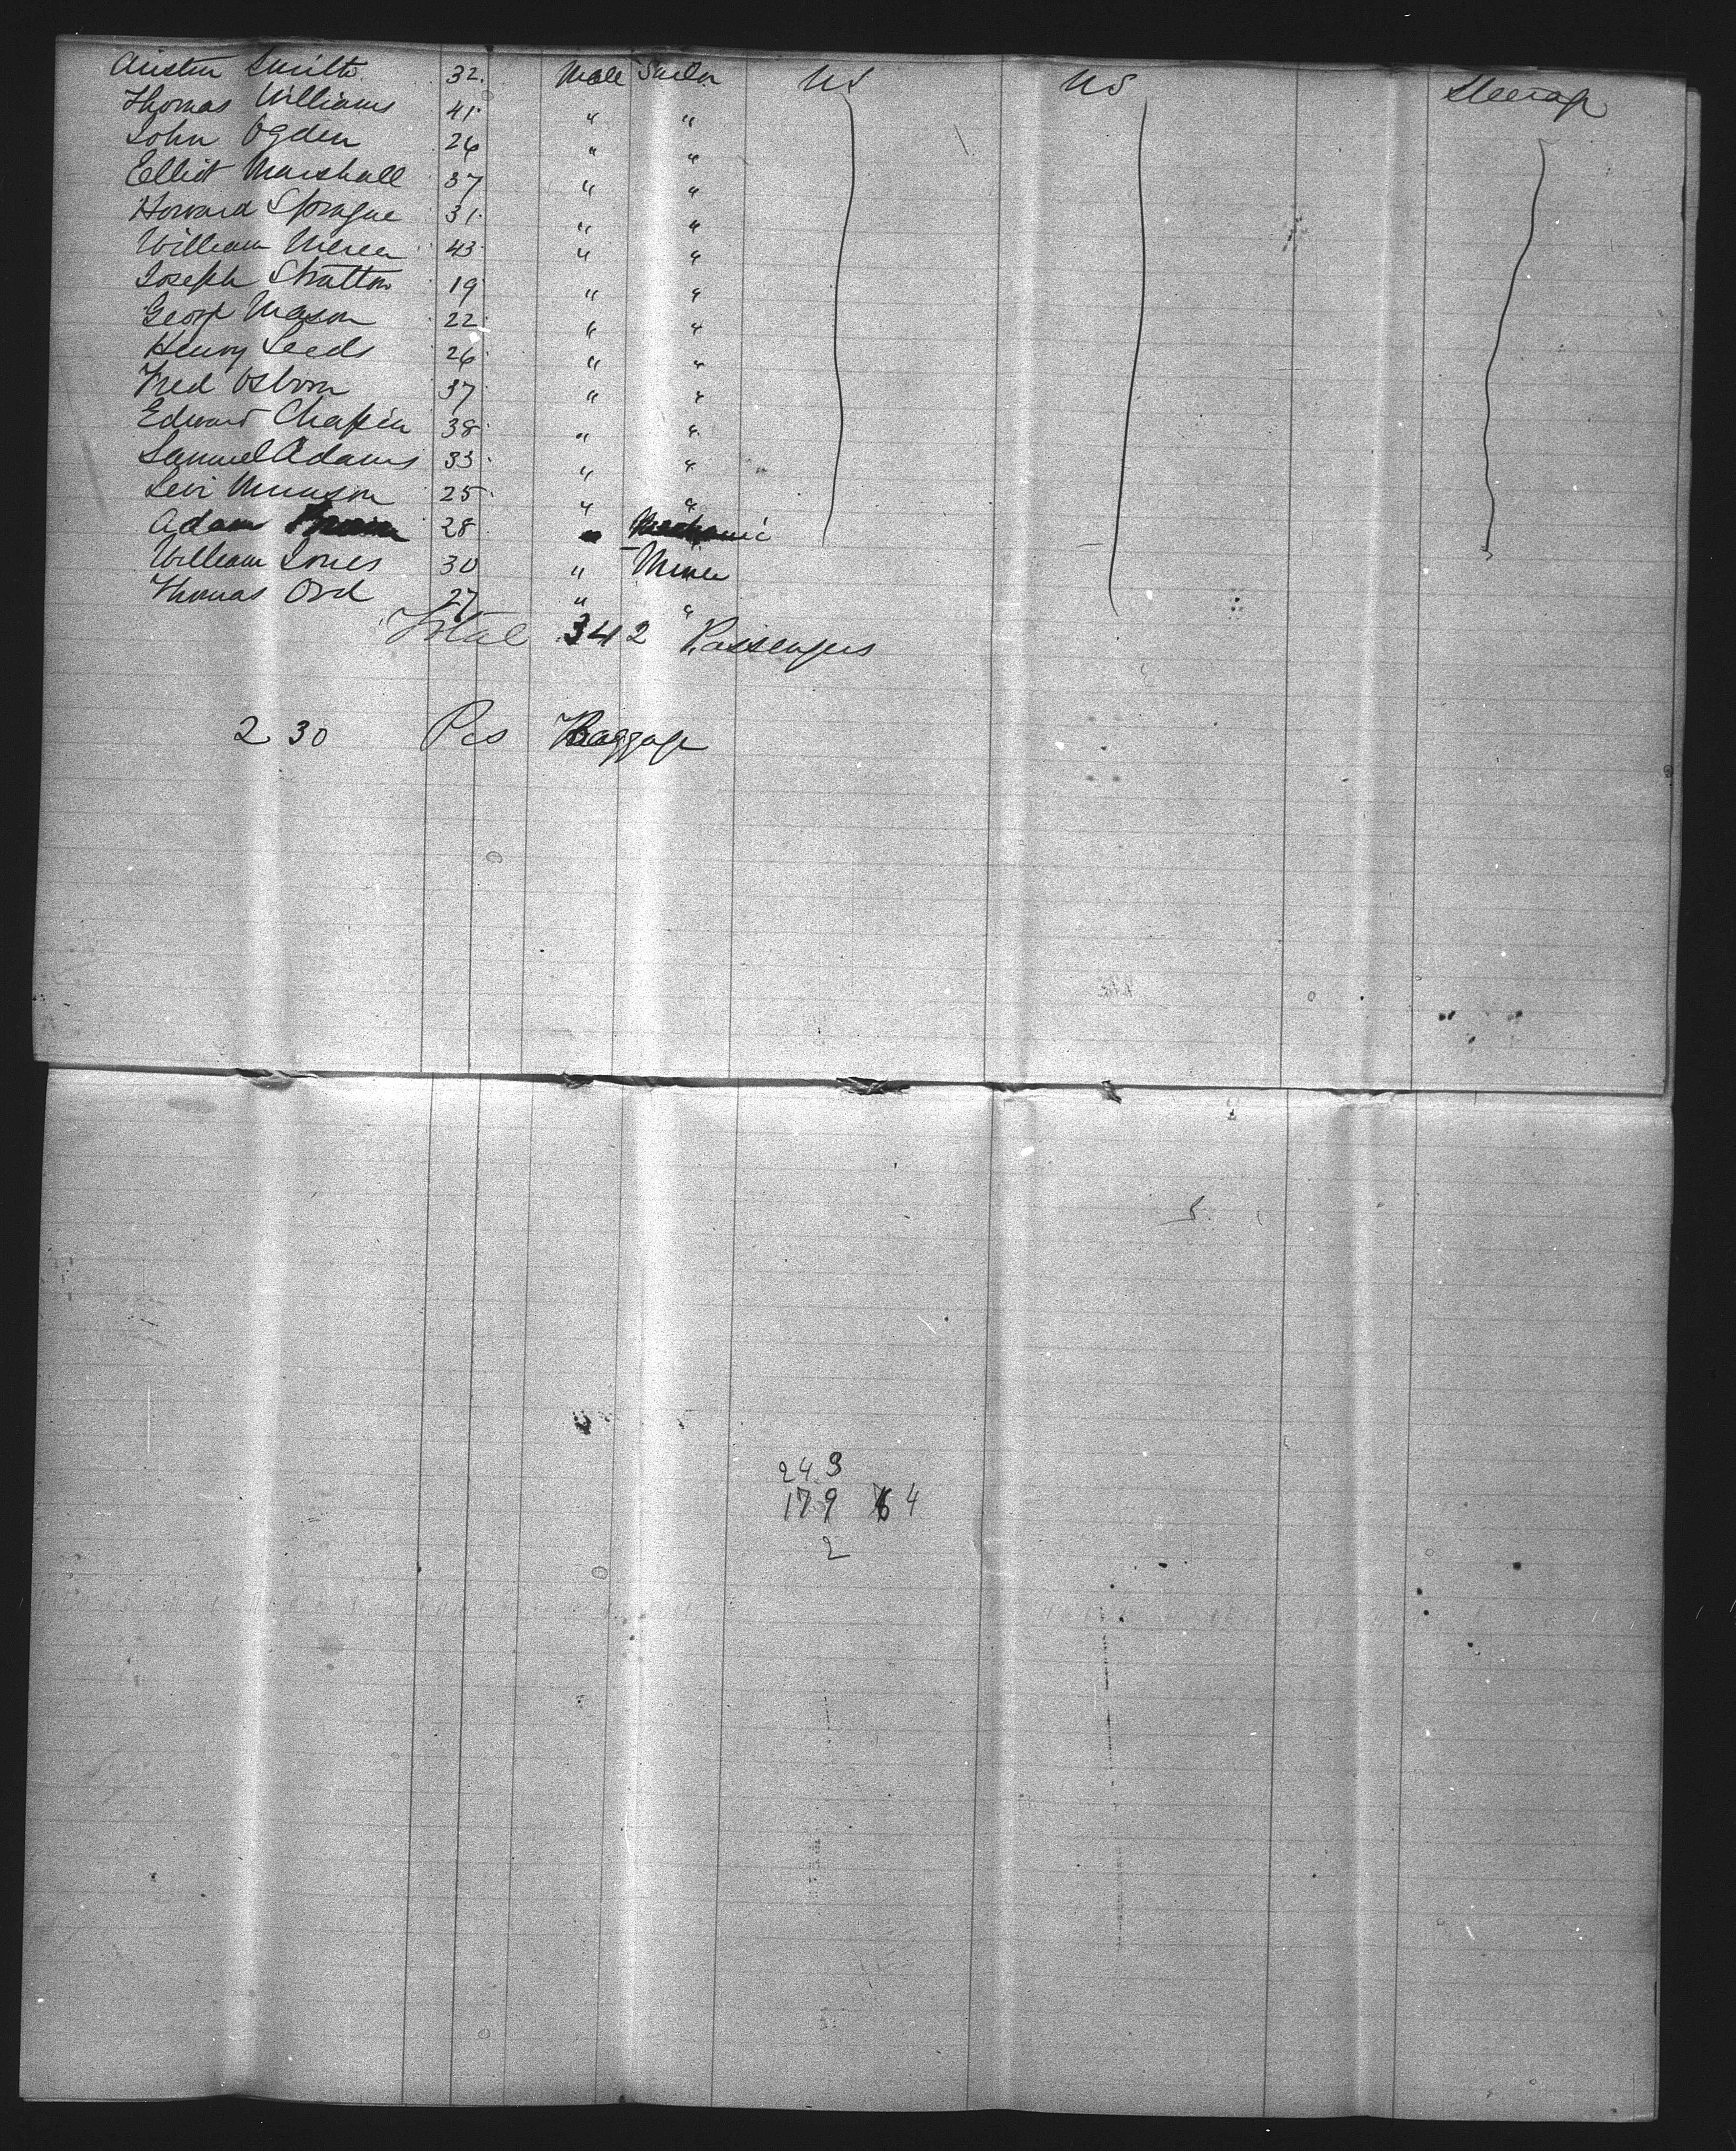 Austin Smith. 32. Male Sailor US US Steerage
Thomas Williams 41 " "
John Ogden 26 " "
Elliot Marshall 37 " "
Howard Sprague 31 " "
William 43 " "
Joseph Stratton 19 " "
George Mason 22 " "
Henry Leeds 26 " "
Fred Osborn 37 " "
Edward Chapin 38 " "
Samuel Adams 33 " "
Levi Munson 25 " "
Adam 28 " Mechanic
William Jones 30 " Miner
Thomas Ord 27 " "
Total 342 Passengers
230 Pcs Baggage
243
179 64
2